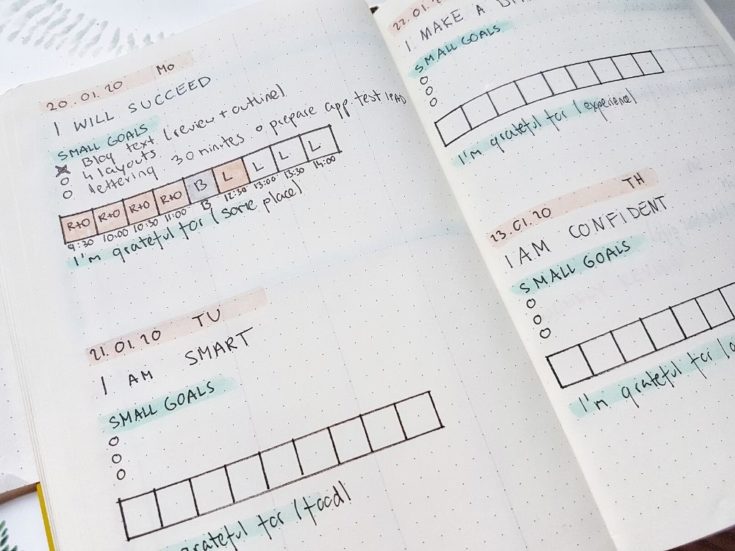 20.01.20 Mo
I WILL SUCCEED
SMALL GOALS
Blog text (review + outline)
4 layouts
lettering 30 minutes o prepare app test
R+O R+O R+O R+O B L L L L
9:30 10:00 10:30 11:00 B 12:30 13:00 13:30 14:00
I'm grateful for (some place)
21.01.20 TU
I AM SMART
SMALL GOALS
grateful for (food)
22.01.20
I MAKE A
SMALL GOALS
I'm grateful for (experience)
23.01.20 TH
I AM CONFIDENT
SMALL GOALS
I'm grateful for